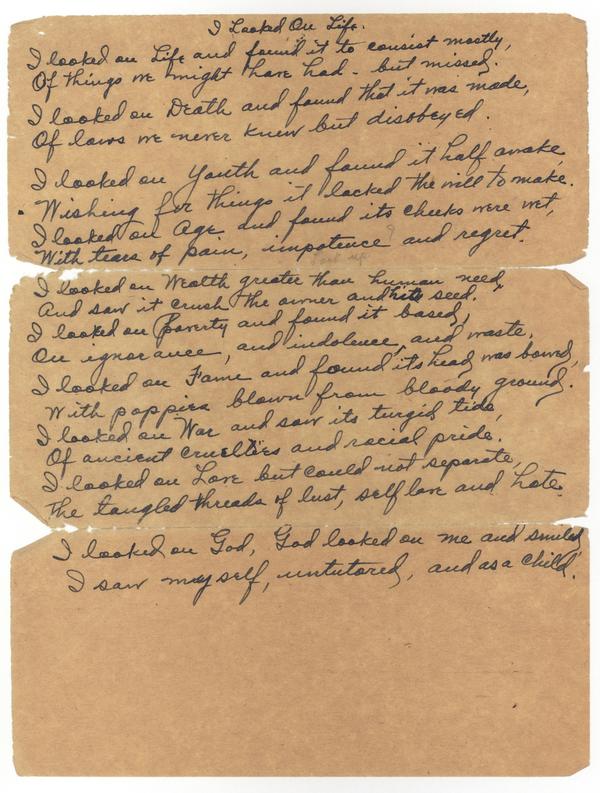 I Looked On Life.
I looked on Life and found it to consist mostly,
Of things we might have had - but missed.
I looked on Death and found that it was made,
Of laws we never knew but disobeyed.
I looked on Youth and found it half awake,
Wishing for things it lacked the will to make.
I looked on Age and found its cheeks were wet,
With tears of pain, impotence and regret.
I looked on Wealth greater than human need,
And saw it crush the owner and his seed.
I looked on Poverty and found it based,
On ignorance, and indolence, and waste,
I looked on Fame and found its head was bowed,
With poppies blown from bloody ground.
I looked on War and saw its turgid tide,
Of ancient cruelties and racial pride.
I looked on Love but could not separate,
The tangled threads of lust, self love and hate.
I looked on God, God looked on me and smiled,
I saw myself, untutored, and as a child.